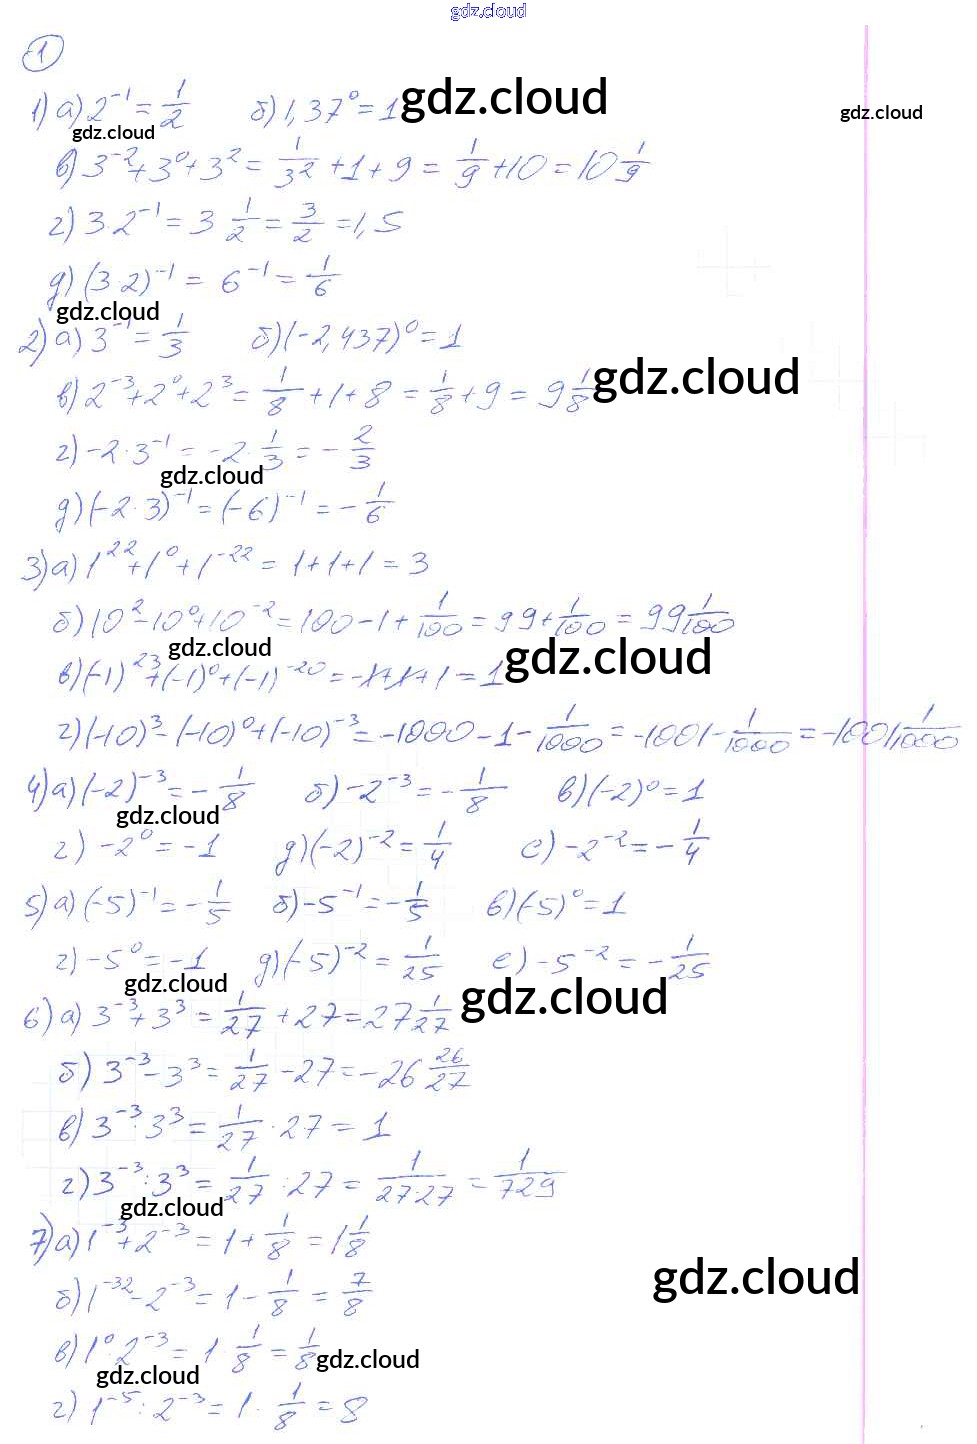 gdz.cloud
1
1) а) 2⁻¹ = 1/2 б) 1,37⁰ = 1 gdz.cloud
gdz.cloud gdz.cloud
в) 3⁻² + 3⁰ + 3² = 1/3² + 1 + 9 = 1/9 + 10 = 10 1/9
г) 3·2⁻¹ = 3 1/2 = 3/2 = 1,5
д) (3·2)⁻¹ = 6⁻¹ = 1/6
gdz.cloud
2) а) 3⁻¹ = 1/3 б) (-2,437)⁰ = 1
в) 2⁻³ + 2⁰ + 2³ = 1/8 + 1 + 8 = 1/8 + 9 = 9 1/8 gdz.cloud
г) -2·3⁻¹ = -2·1/3 = -2/3
gdz.cloud
д) (-2·3)⁻¹ = (-6)⁻¹ = -1/6
3) а) 1²² + 1⁰ + 1⁻²² = 1 + 1 + 1 = 3
б) 10² - 10⁰ + 10⁻² = 100 - 1 + 1/100 = 99 + 1/100 = 99 1/100
gdz.cloud gdz.cloud
в) (-1)²³ + (-1)⁰ + (-1)⁻²⁰ = -1 + 1 + 1 = 1
г) (-10)³ - (-10)⁰ + (-10)⁻³ = -1000 - 1 - 1/1000 = -1001 - 1/1000 = -1001 1/1000
4) а) (-2)⁻³ = -1/8 б) -2⁻³ = -1/8 в) (-2)⁰ = 1
gdz.cloud
г) -2⁰ = -1 д) (-2)⁻² = 1/4 е) -2⁻² = -1/4
5) а) (-5)⁻¹ = -1/5 б) -5⁻¹ = -1/5 в) (-5)⁰ = 1
г) -5⁰ = -1 д) (-5)⁻² = 1/25 е) -5⁻² = -1/25
gdz.cloud gdz.cloud
6) а) 3⁻³ + 3³ = 1/27 + 27 = 27 1/27
б) 3⁻³ - 3³ = 1/27 - 27 = -26 26/27
в) 3⁻³·3³ = 1/27 · 27 = 1
г) 3⁻³ : 3³ = 1/27 : 27 = 1/27·27 = 1/729
gdz.cloud
7) а) 1⁻³ + 2⁻³ = 1 + 1/8 = 1 1/8
gdz.cloud
б) 1⁻³² - 2⁻³ = 1 - 1/8 = 7/8
в) 1⁰·2⁻³ = 1·1/8 = 1/8 gdz.cloud
gdz.cloud
г) 1⁻⁵ : 2⁻³ = 1· 1/8 = 8